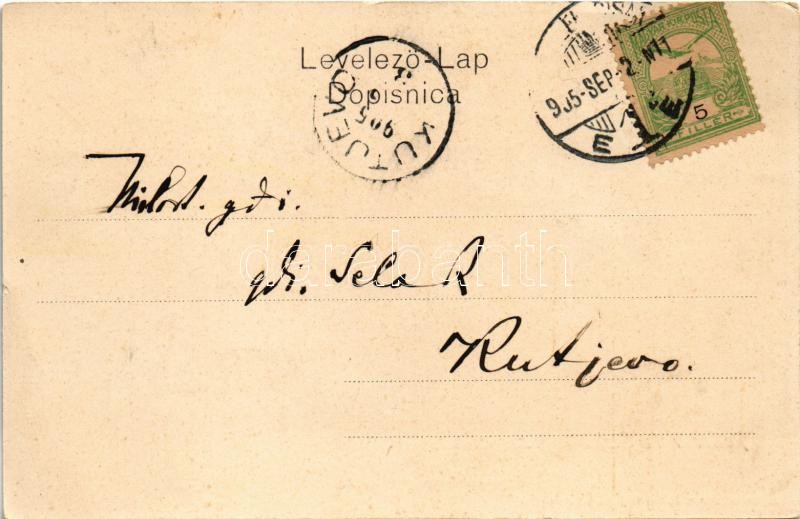 Levelező-Lap
Dopisnica
KUTJEVO
905
905-SEP-2
5
FILLER
Milost. gđi.
gđi. Selak
Kutjevo.
darabanth